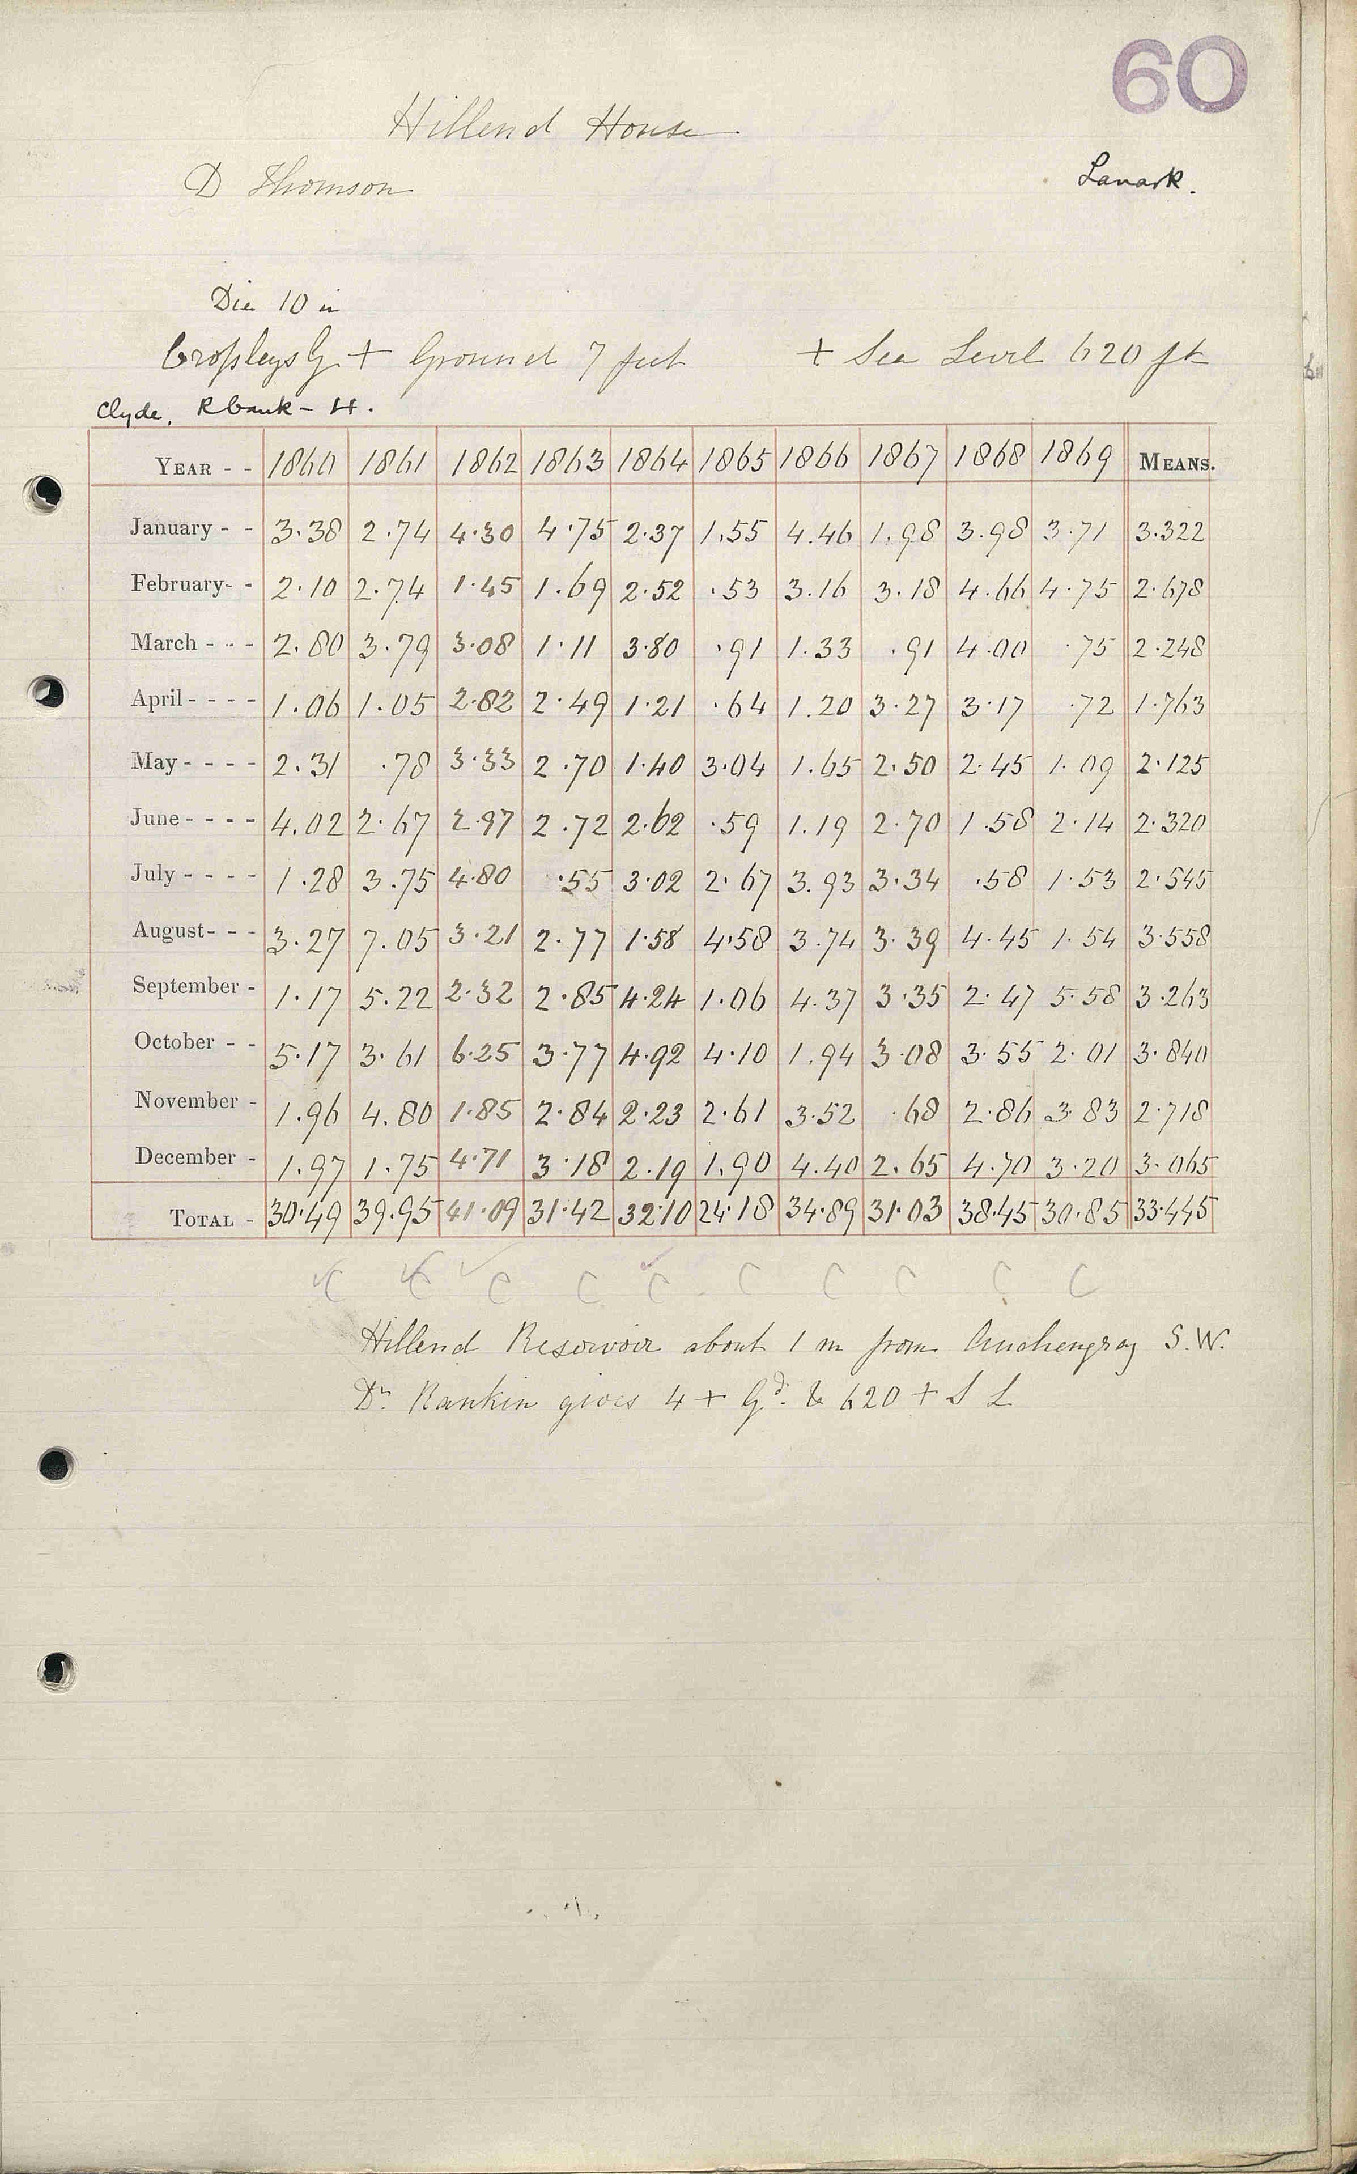 60
Hillend House
D Thomson Lanark.
Dia 10 in
Cropleys G + Ground 7 feet + Sea Level 620 ft
Clyde. R bank - H.
YEAR - - 1860 1861 1862 1863 1864 1865 1866 1867 1868 1869 MEANS.
January - - 3.38 2.74 4.30 4.75 2.37 1.55 4.46 1.98 3.98 3.71 3.322
February- - 2.10 2.74 1.45 1.69 2.52 .53 3.16 3.18 4.66 4.75 2.678
March - - - 2.80 3.79 3.08 1.11 3.80 .91 1.33 .91 4.00 .75 2.248
April - - - - 1.06 1.05 2.82 2.49 1.21 .64 1.20 3.27 3.17 .72 1.763
May - - - - 2.31 .78 3.33 2.70 1.40 3.04 1.65 2.50 2.45 1.09 2.125
June - - - - 4.02 2.67 2.97 2.72 2.62 .59 1.19 2.70 1.58 2.14 2.320
July - - - - 1.28 3.75 4.80 .55 3.02 2.67 3.93 3.34 .58 1.53 2.545
August- - - 3.27 7.05 3.21 2.77 1.58 4.58 3.74 3.39 4.45 1.54 3.558
September - 1.17 5.22 2.32 2.85 4.24 1.06 4.37 3.35 2.47 5.58 3.263
October - - 5.17 3.61 6.25 3.77 4.92 4.10 1.94 3.08 3.55 2.01 3.840
November - 1.96 4.80 1.85 2.84 2.23 2.61 3.52 .68 2.86 3.83 2.718
December - 1.97 1.75 4.71 3.18 2.19 1.90 4.40 2.65 4.70 3.20 3.065
TOTAL - 30.49 39.95 41.09 31.42 32.10 24.18 34.89 31.03 38.45 30.85 33.445
C C C C C C C C C C
Hillend Reservoir about 1 m from Auchengray S.W.
Dr. Rankin gives 4 + Gd. & 620 + S L